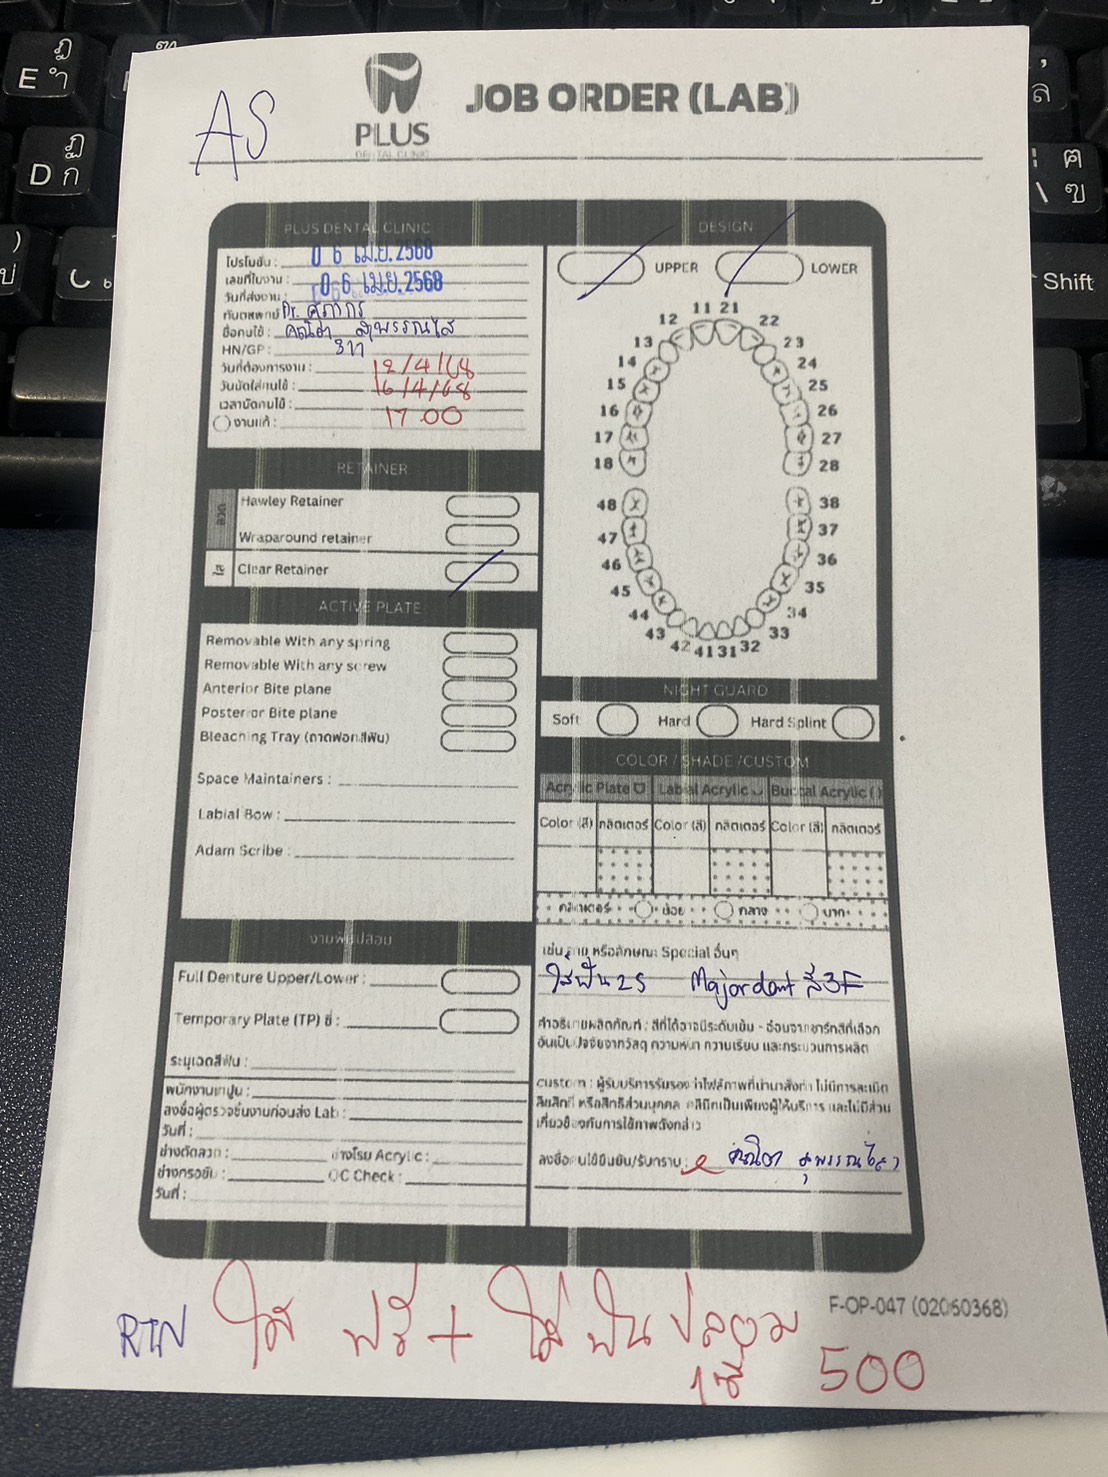 AS
PLUS
DENTAL CLINIC
JOB ORDER (LAB)
PLUS DENTAL CLINIC
โปรโมชั่น : 06 เม.ย. 2568
เลขที่ใบงาน : 06 เม.ย. 2568
วันที่ส่งงาน :
ทันตแพทย์ Dr. ศุภากร
ชื่อคนไข้ : คณิตา สุพรรณไส
HN/GP: 311
วันที่ต้องการงาน : 12/4/68
วันนัดใส่คนไข้ : 16/4/68
เวลานัดคนไข้ :
งานแก้ : 17.00
RETAINER
ลวด
Hawley Retainer
Wraparound retainer
ใส
Clear Retainer
ACTIVE PLATE
Removable With any spring
Removable With any screw
Anterior Bite plane
Posterior Bite plane
Bleaching Tray (ถาดฟอกสีฟัน)
Space Maintainers :
Labial Bow :
Adam Scribe :
งานฟันปลอม
Full Denture Upper/Lower :
Temporary Plate (TP) ซี่ :
ระบุเฉดสีฟัน :
พนักงานเทปูน :
ลงชื่อผู้ตรวจชิ้นงานก่อนส่ง Lab :
วันที่ :
ช่างดัดลวด : ช่างโรย Acrylic :
ช่างกรอขัด : QC Check :
วันที่ :
DESIGN
UPPER LOWER
11 21
12 22
13 23
14 24
15 25
16 26
17 27
18 28
48 38
47 37
46 36
45 35
44 34
43 33
42 41 31 32
NIGHT GUARD
Soft Hard Hard Splint
COLOR / SHADE /CUSTOM
Acrylic Plate Labial Acrylic Buccal Acrylic ( )
Color (สี) กลิตเตอร์ Color (สี) กลิตเตอร์ Color (สี) กลิตเตอร์
กลิตเตอร์ น้อย กลาง มาก
เช่น ลาย หรือลักษณะ Special อื่นๆ
ใส่ฟัน 25 Majordent สี 3F
คำอธิบายผลิตภัณฑ์ : สีที่ได้อาจมีระดับเข้ม - อ่อนจากชาร์ทสีที่เลือก
อันเป็นปัจจัยจากวัสดุ ความหนา ความเรียบ และกระบวนการผลิต
custom : ผู้รับบริการรับรองว่าไฟล์ภาพที่นำมาสั่งทำ ไม่มีการละเมิด
ลิขสิทธิ์ หรือสิทธิส่วนบุคคล คลินิกเป็นเพียงผู้ให้บริการ และไม่มีส่วน
เกี่ยวข้องกับการใช้ภาพดังกล่าว
ลงชื่อคนไข้ยืนยัน/รับทราบ : คณิตา สุพรรณไสว
F-OP-047 (02060368)
RTN ใส ฟรี + ใส่ฟันปลอม
1 ซี่ 500